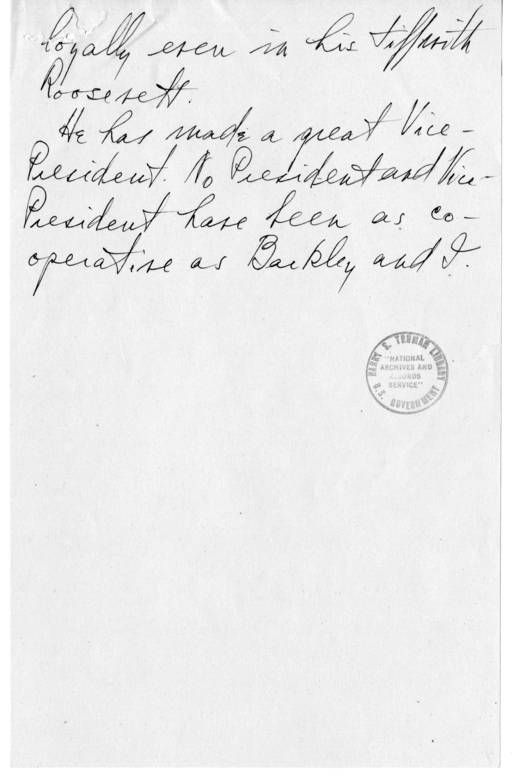 loyally even in his tiff with
Roosevelt.
He has made a great Vice-
President. No President and Vice-
President have been as co-
operative as Barkley and I.
HARRY S. TRUMAN LIBRARY
"NATIONAL
ARCHIVES AND
RECORDS
SERVICE"
U.S. GOVERNMENT